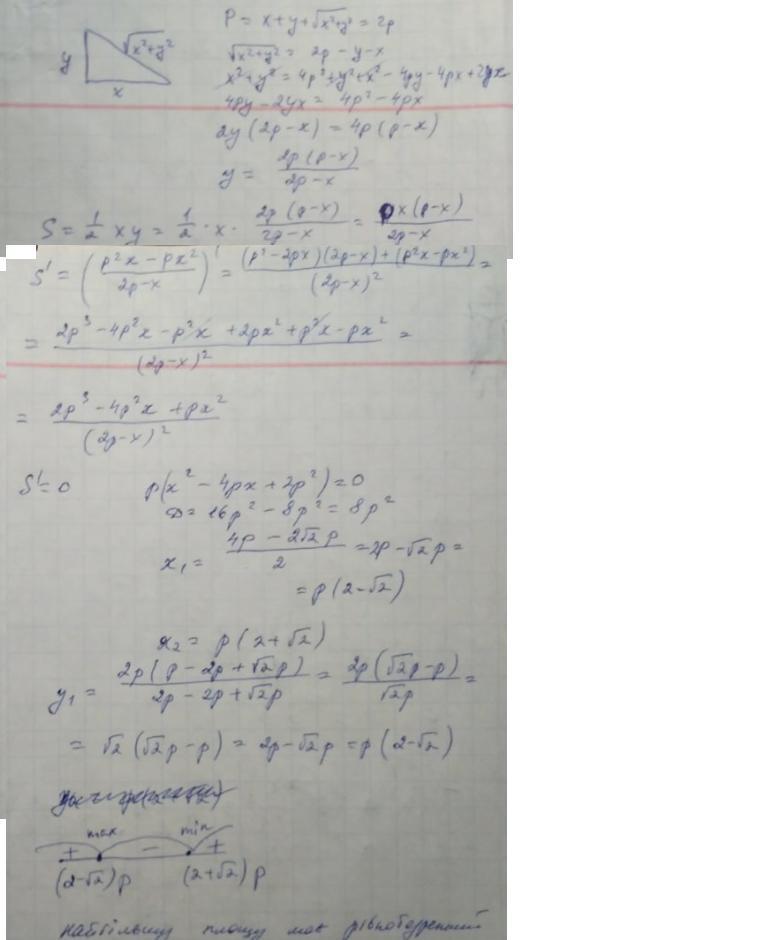 P = x + y + √x²+y² = 2p
y √x²+y²
x
√x²+y² = 2p - y - x
x² + y² = 4p² + y² + x² - 4py - 4px + 2yx
4py - 2yx = 4p² - 4px
2y (2p-x) = 4p (p-x)
y = 2p(p-x) / 2p-x
S = 1/2 xy = 1/2 · x · 2p(p-x) / 2p-x = px(p-x) / 2p-x
S' = (p²x - px² / 2p-x)' = (p²-2px)(2p-x) + (p²x-px²) / (2p-x)² =
= 2p³ - 4p²x - p²x + 2px² + p²x - px² / (2p-x)² =
= 2p³ - 4p²x + px² / (2p-x)²
S' = 0 p(x² - 4px + 2p²) = 0
D = 16p² - 8p² = 8p²
x₁ = 4p - 2√2p / 2 = 2p - √2p =
= p(2-√2)
x₂ = p(2+√2)
y₁ = 2p(p - 2p + √2p) / 2p - 2p + √2p = 2p(√2p - p) / √2p =
= √2 (√2p - p) = 2p - √2p = p(2-√2)
max min
+ - +
(2-√2)p (2+√2)p
найбільшу площу має рівнобедренний